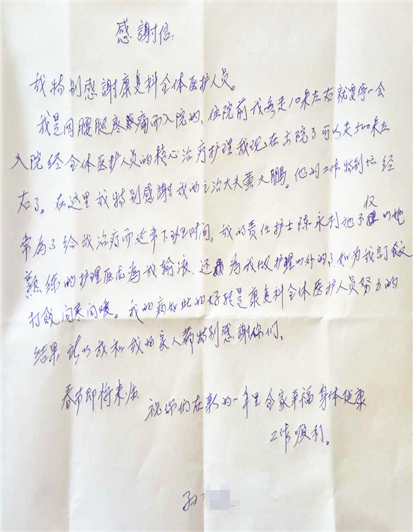 感謝信:
我特别感謝康复科全体医护人员。
我是因腰腿疼痛而入院的,住院前我每走10米左右就要停一会
入院经全体医护人员的精心治疗护理我现在出院了可以走30米左
右了。在这里我特别感谢我的主治大夫黄大鹏。他的工作特别忙经
常为了给我治疗而延长下班时间,我的责任护士陈永利他不仅
熟练的护理 为我输液,还 为我做护理 和为我
打饭问寒问暖。我的病如此的好转是康复科全体医护人员努力的
结果 我和我的家人都特别感谢你们。
春节即将来临
祝你们在新的一年里全家幸福身体健康
工作顺利。
孙